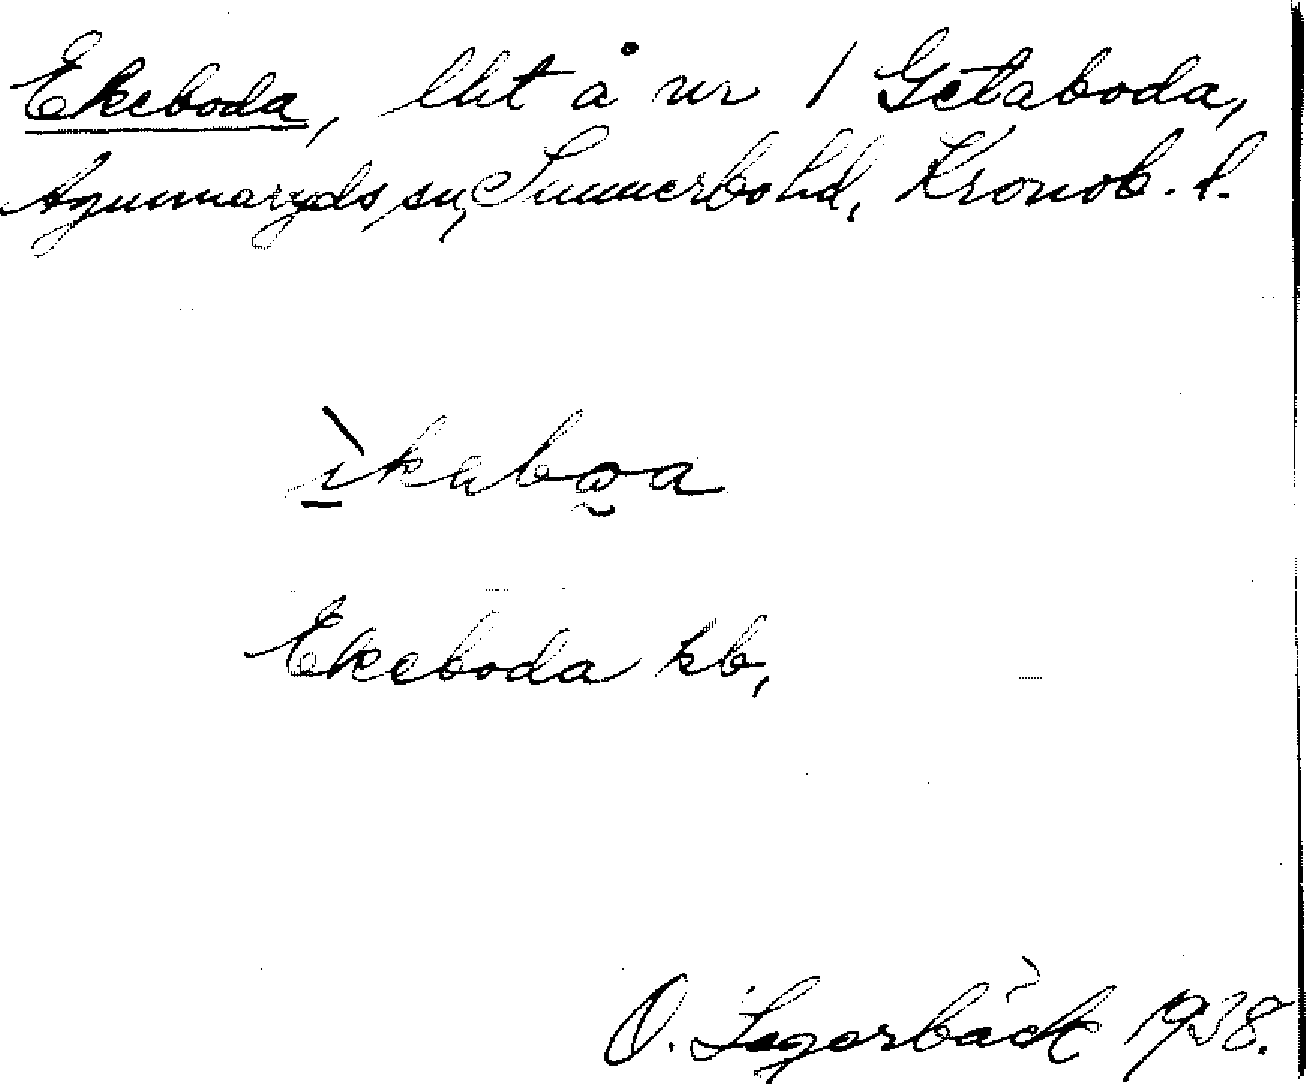 Ekeboda, lht å nr 1 Getaboda,
Agunnaryds sn, Sunnerbo hd, Kronob. l.
ìkabωa
Ekeboda kb,
O. Lagerbäck 1938.